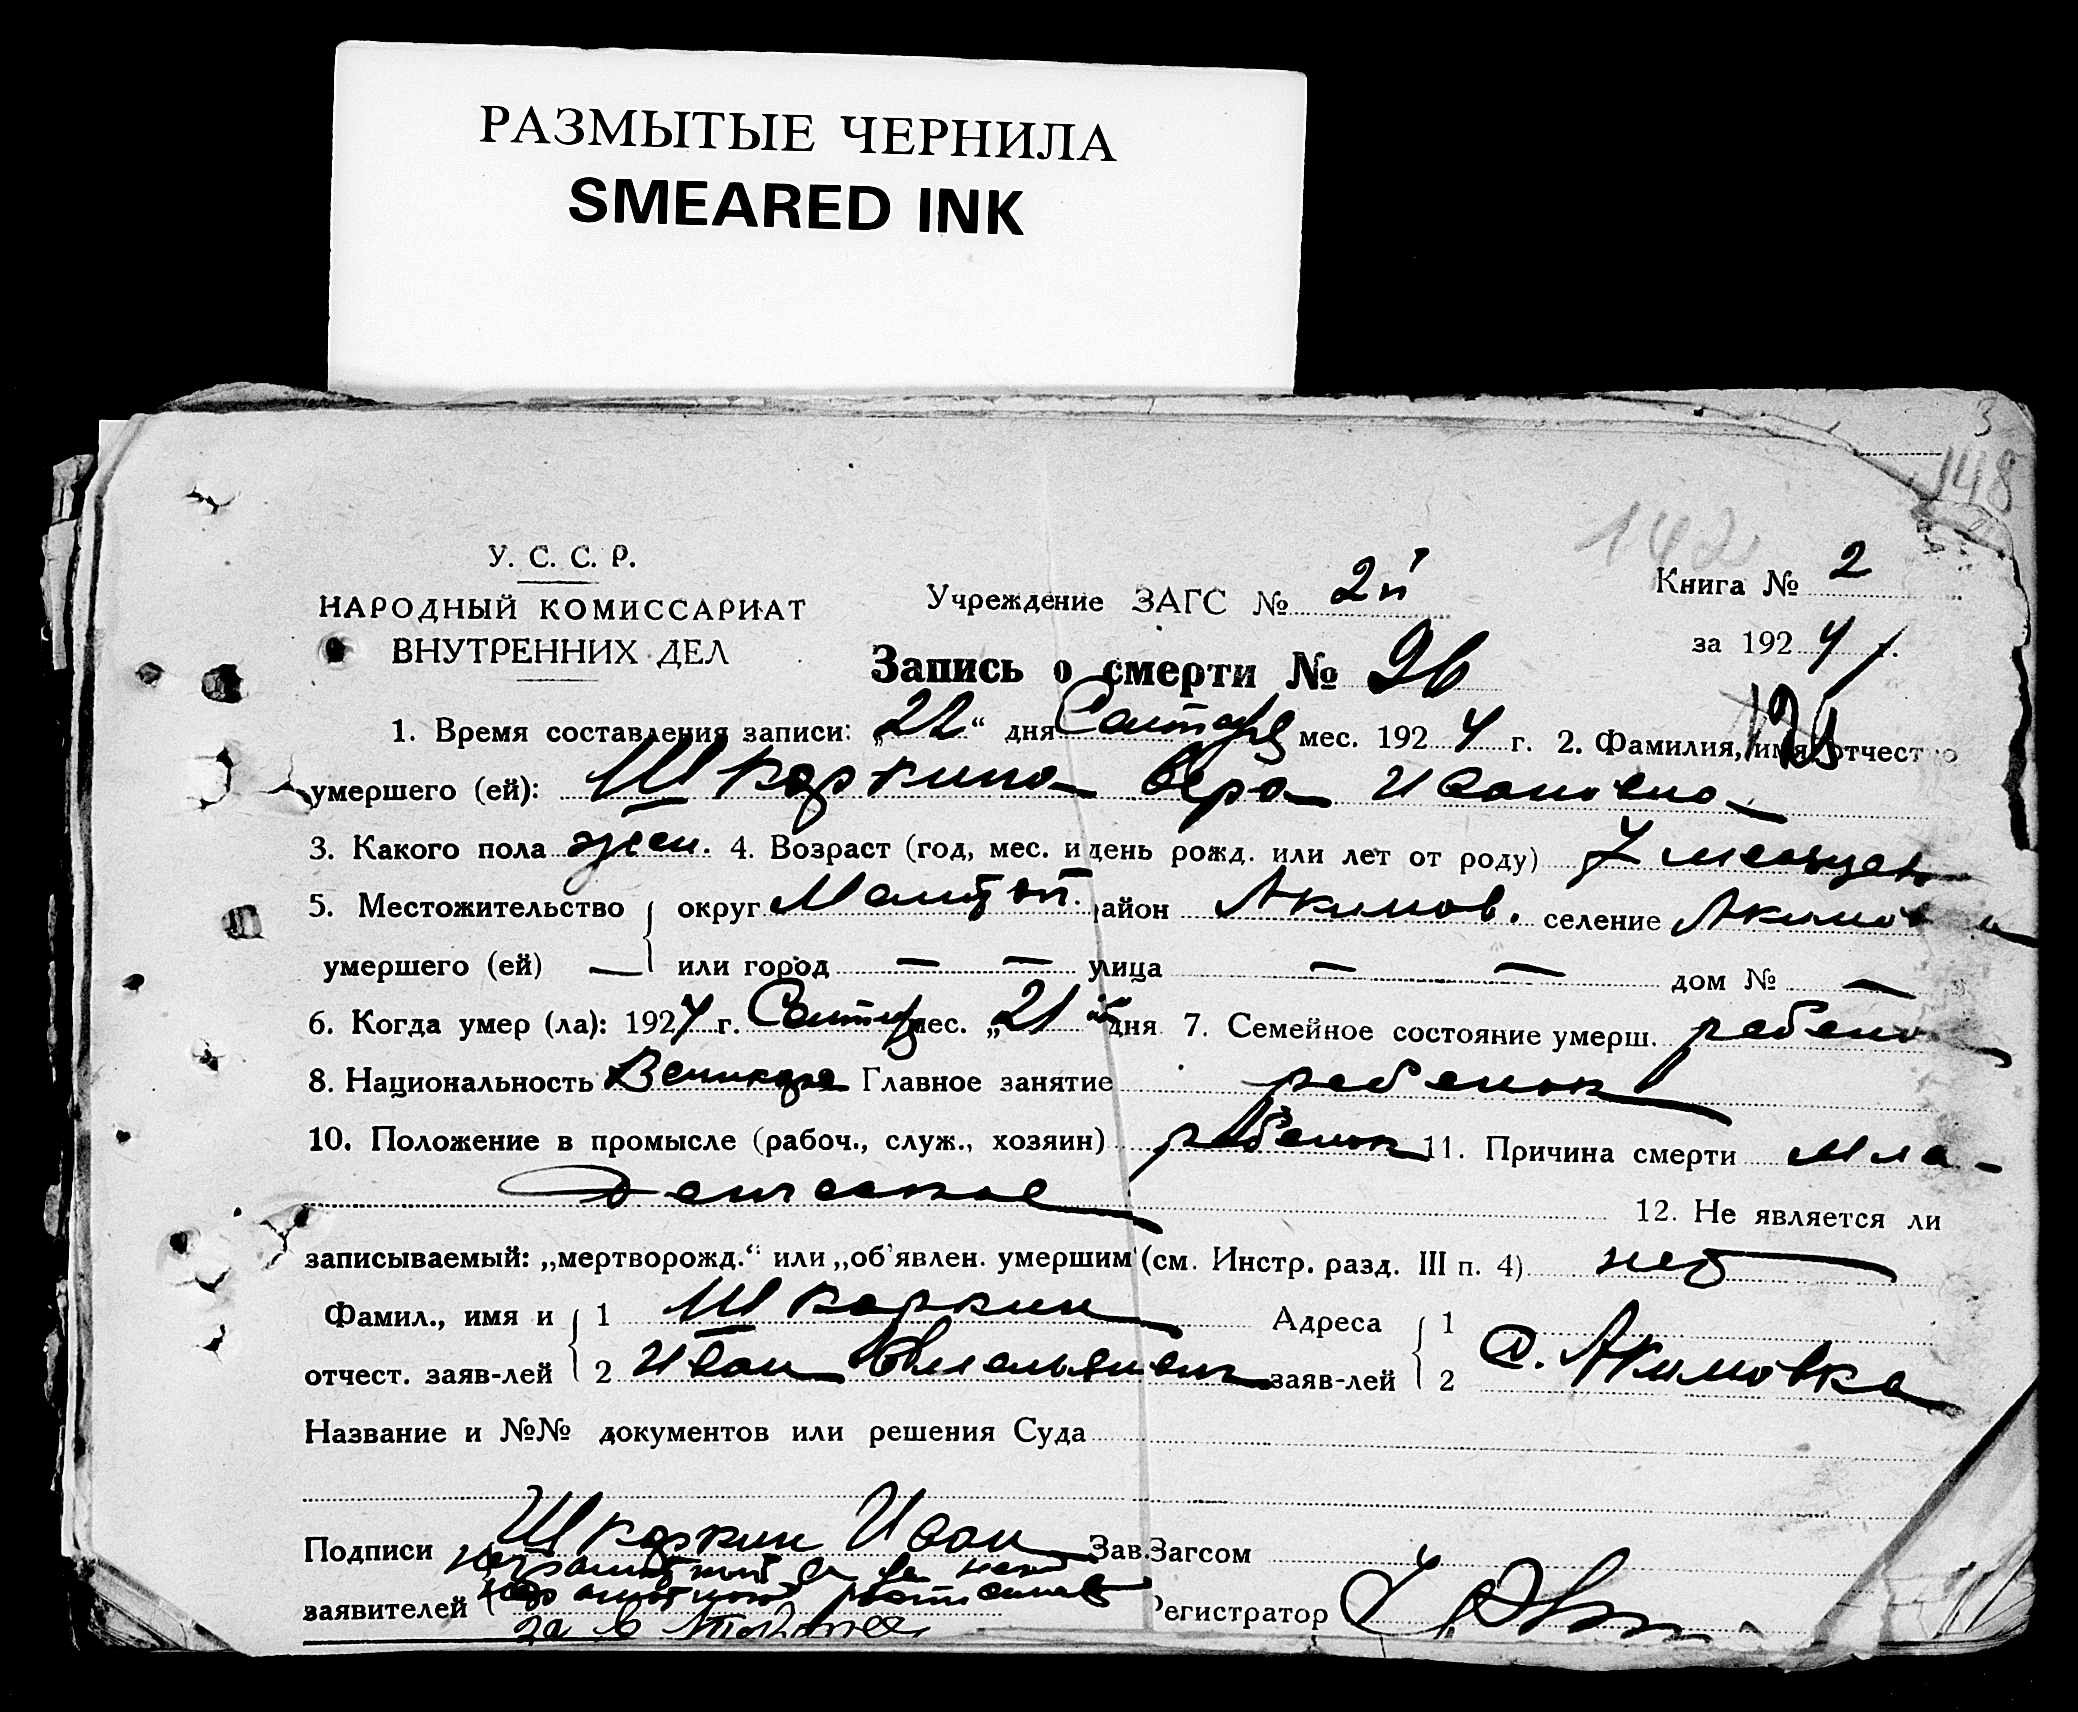 РАЗМЫТЫЕ ЧЕРНИЛА
SMEARED INK
3
148
142
У. С. С. Р.
НАРОДНЫЙ КОМИССАРИАТ
ВНУТРЕННИХ ДЕЛ
Учреждение ЗАГС № 2й
Книга № 2
за 1924 г.
Запись о смерти № 96
1. Время составления записи: „22“ дня мес. 1924 г. 2. Фамилия, имя, отчество
умершего (ей): Шкаркина Вера Ивановна
3. Какого пола жен. 4. Возраст (год, мес. и день рожд. или лет от роду) 7 месяцев
5. Местожительство округ Мелитоп. район Акимов. селение Акимовка
умершего (ей) — или город — — улица — — дом № —
6. Когда умер (ла): 1924 г. мес. „21“ дня 7. Семейное состояние умерш. ребенок
8. Национальность Главное занятие ребенок
10. Положение в промысле (рабоч., служ., хозяин) ребенок 11. Причина смерти мла-
денческое
12. Не является ли
записываемый: „мертворожд.“ или „об'явлен. умершим (см. Инстр. разд. III п. 4) нет
Фамил., имя и 1 Шкаркин Адреса 1
отчест. заяв-лей 2 Иван Емельянович заяв-лей 2 с. Акимовка
Название и №№ документов или решения Суда
Подписи Шкаркин Иван Зав. Загсом
неграмотный а за него
заявителей неграмотного
за Регистратор